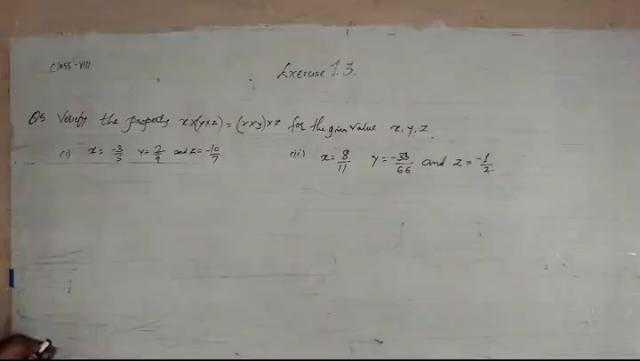 Class-VIII
Exercise 1.3.
Q5 Verify the property x×(y×z) = (x×y)×z for the given value x, y, z
(i) x = -3/5 y = 2/9 and z = -10/7 (ii) x = 8/11 y = -33/66 and z = -1/2